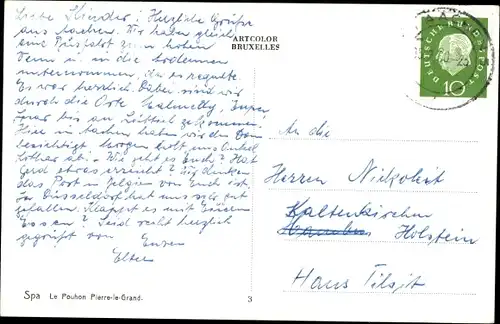 Liebe Kinder! Herzliche Grüße
aus Aachen. Wir haben gleich
eine Eifelfahrt zum hohen
Venn u. in die
unternommen, da es regnete.
Es war herrlich. Dabei sind wir
durch die Orte Malmedy, Eupen
bis an Lüttich gekommen!
Hier in Aachen haben wir den Dom
besichtigt. Morgen holt uns Onkel
Lothar ab. – Wie geht es Euch? Hat
Gerd etwas erreicht? Wir denken
das Post in von Euch ist.
In Düsseldorf hat uns sehr gut
gefallen. Klappt es mit Eurem
Essen? Seid recht herzlich
gegrüßt von Euren
Eltern
ARTCOLOR
BRUXELLES
DEUTSCHE BUNDESPOST
10
An die
Herren Nickoleit
Kaltenkirchen
Holstein
Haus Tilsit
Spa Le Pouhon Pierre-le-Grand.
3